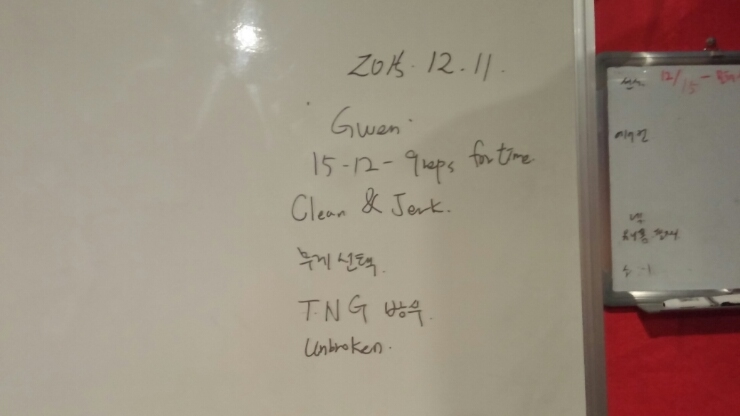 2015.12.11.
Gwen.
15-12-9 reps for time
Clean & Jerk.
무게 선택.
T.N.G 방우.
Unbroken.
12/15 -